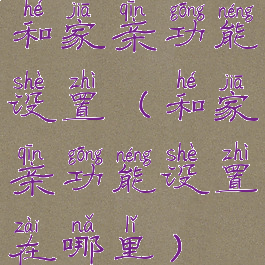 hé jiā qīn gōng néng
和家亲功能
shè zhì hé jiā
设置(和家
qīn gōng néng shè zhì
亲功能设置
zài nǎ lǐ
在哪里)